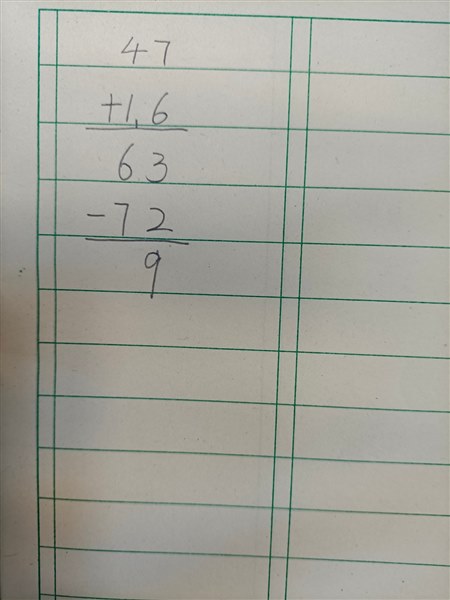 47
+1.6
63
-72
9